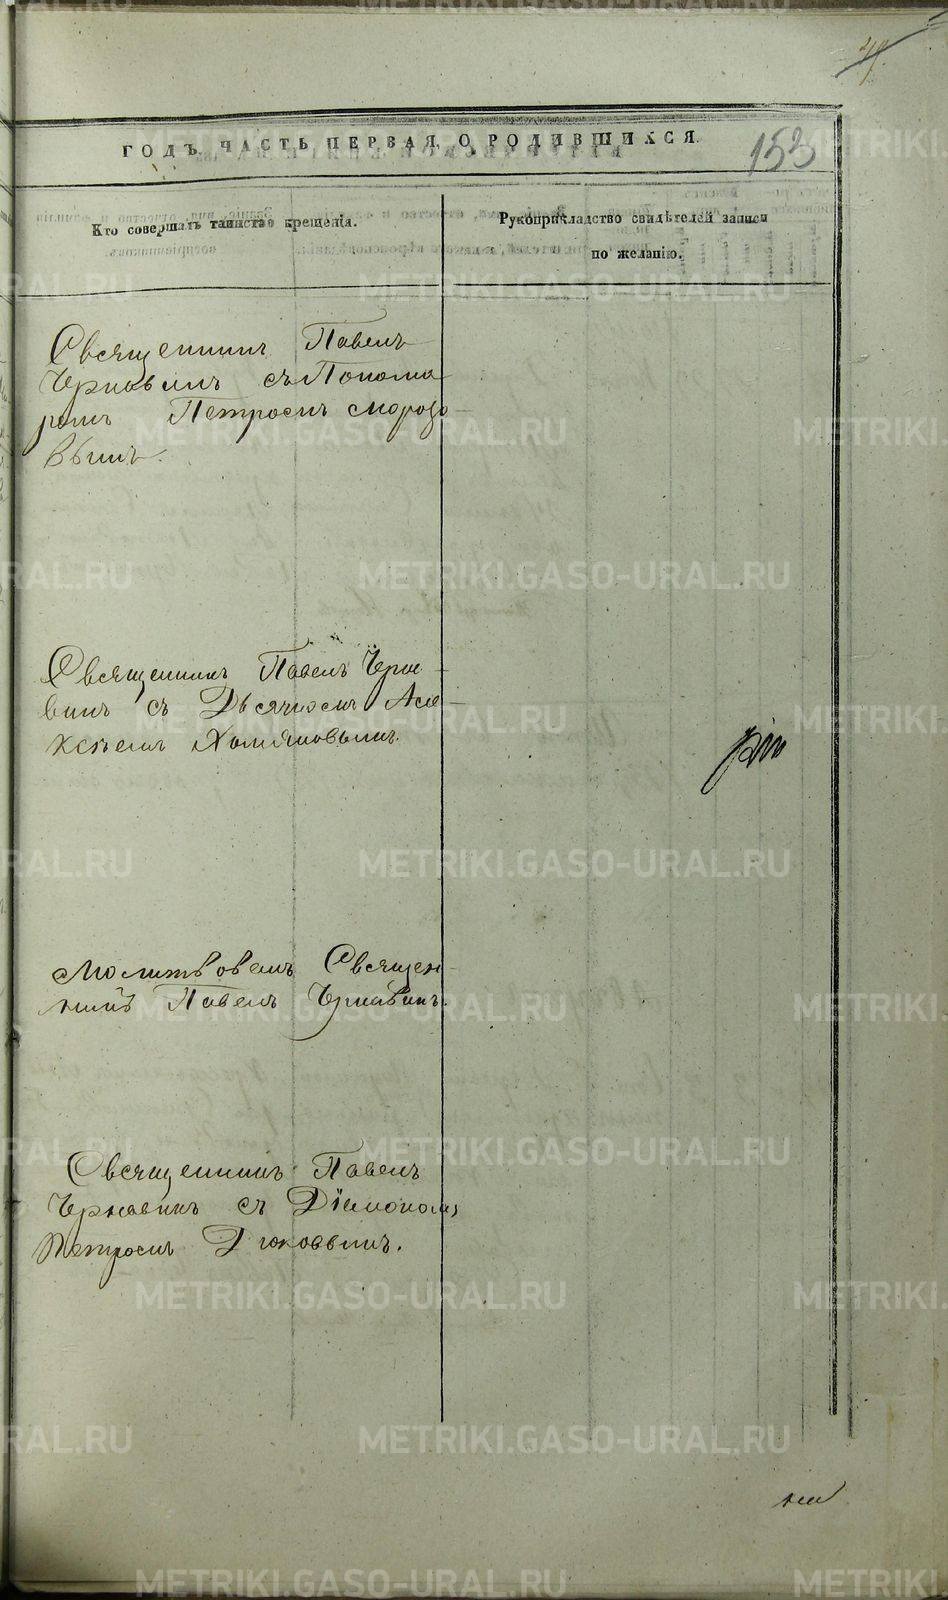 153
ГОДЪ, ЧАСТЬ ПЕРВАЯ, О РОДИВШИХСЯ.
Кто совершалъ таинство крещенія.
Рукоприкладство свидѣтелей записи
по желанію.
Священникъ Павелъ
Чернавинъ съ Понома
ремъ Петромъ Морозо
вымъ.
Священникъ Павелъ Черна
винъ съ Дьячкомъ Але
ксѣемъ Хомяковымъ.
Молитвовалъ Священ
никъ Павелъ Чернавинъ.
Священникъ Павелъ
Чернавинъ съ Діакономъ
Петромъ Дюковымъ.
METRIKI.GASO-URAL.RU